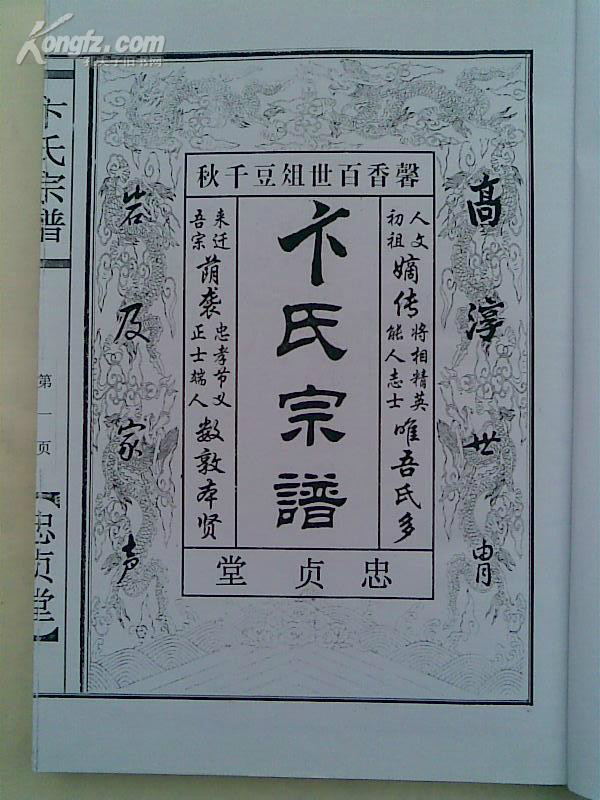 Kongfz.com
孔夫子旧书网
馨香百世俎豆千秋
高淳世胄
人文初祖嫡传将相精英能人志士唯吾氏多
卞氏宗譜
来迁吾宗荫袭忠孝节义正士端人数敦本贤
岩及家声
忠贞堂
卞氏宗譜
第一页
【忠贞堂】